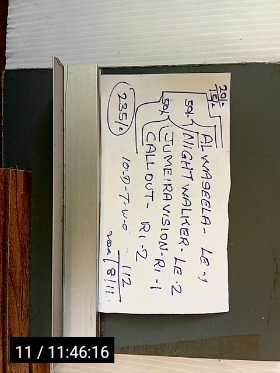 20%
75%
AL WASEELA - LE-1
50% NIGHT WALKER - LE-2
50% JUMEIRA VISION - R1-1
CALL OUT - R1-2
235%
10-D-T-U-O
112
8111
11 / 11:46:16